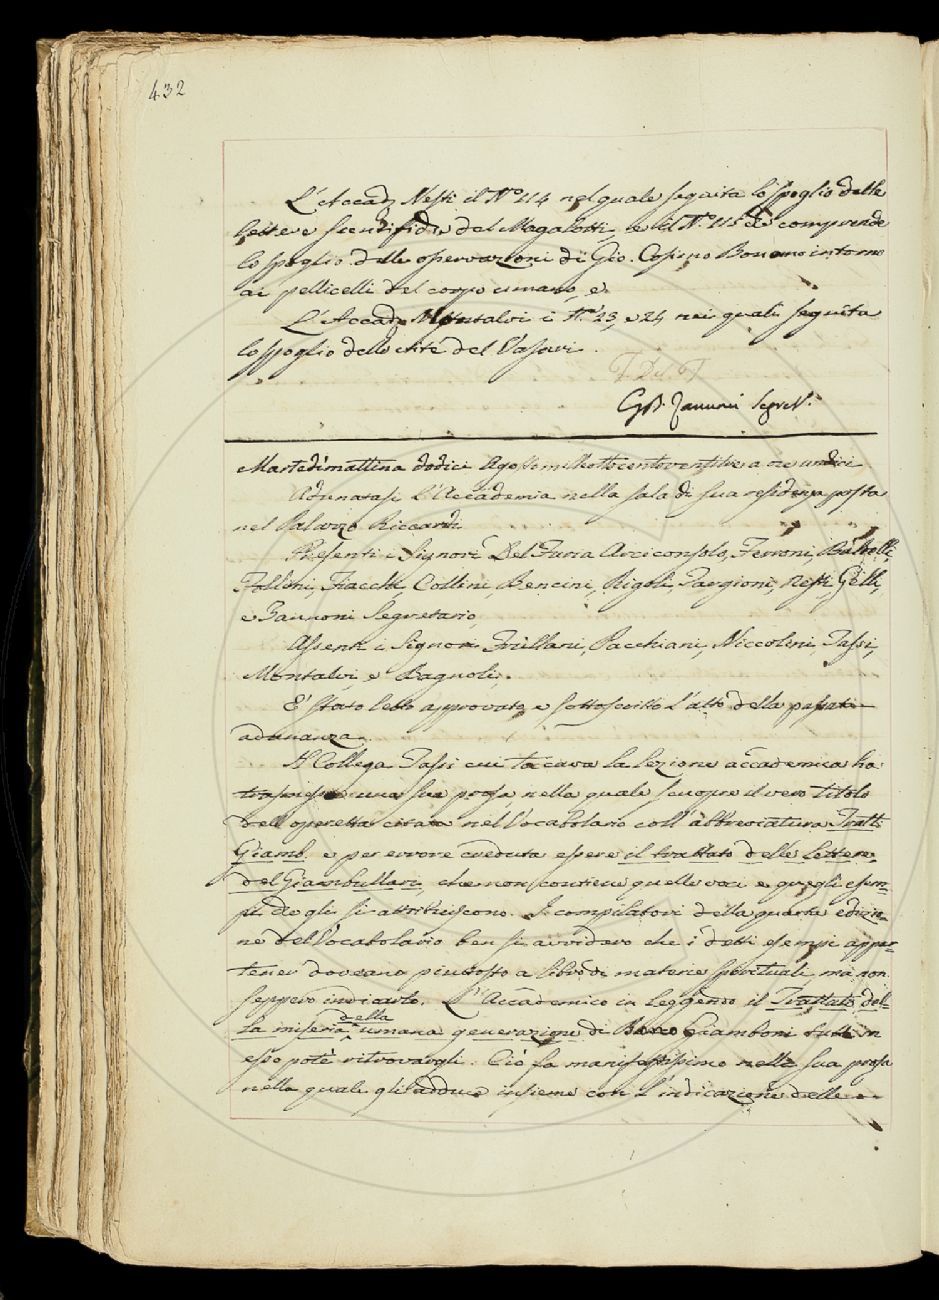 432
L'Accad. Nesti il N.º 114 nel quale seguita lo spoglio delle
lettere scientifiche del Magalotti, e il N.º 115 che comprende
lo spoglio delle osservazioni di Gio. Cosimo Bonomo intorno
ai pellicelli del corpo umano, e
L'Accad. Montalvi i N.i 23, e 24 nei quali seguita
lo spoglio delle vite del Vasari.
F. Del F.
GB. Zannoni Segret.
Martedì mattina dodici Agosto milleottocentoventitre a ore undici
Adunatasi l'Accademia nella sala di sua residenza posta
nel Palazzo Riccardi
Presenti i Signori Del Furia Arciconsolo, Ferroni,
Follini, Fiacchi, Collini, Bencini, Rigoli, Targioni, Nesti, Gelli,
e Zannoni Segretario,
Assenti i Signori Frullani, Pacchiani, Niccolini, Tassi,
Montalvi, e Bagnoli,
E' stato letto approvato, e sottoscritto l'atto della passata
adunanza.
Il Collega Tassi cui toccava la lezione accademica ha
trasmesso una sua prosa, nella quale scuopre il vero titolo
dell'operetta citata nel Vocabolario coll'abbreviatura Tratt.
Giamb. e per errore creduta essere il trattato delle lettere
del Giambullari, che non contiene quelle voci e quegli esem-
pi che gli si attribuiscono. I compilatori della quarta edizio-
ne del Vocabolario ben si avvidero che i detti esempi appar-
tener doveano piuttosto a libro di materie spirituali, ma non
seppero indicarlo. L'Accademico in leggendo il Trattato del-
la miseria della umana generazione di Bono Giamboni tutti in
esso potè ritrovargli. Ciò fa manifestissimo nella sua prosa
nella quale gli adduce insieme con l'indicazione delle